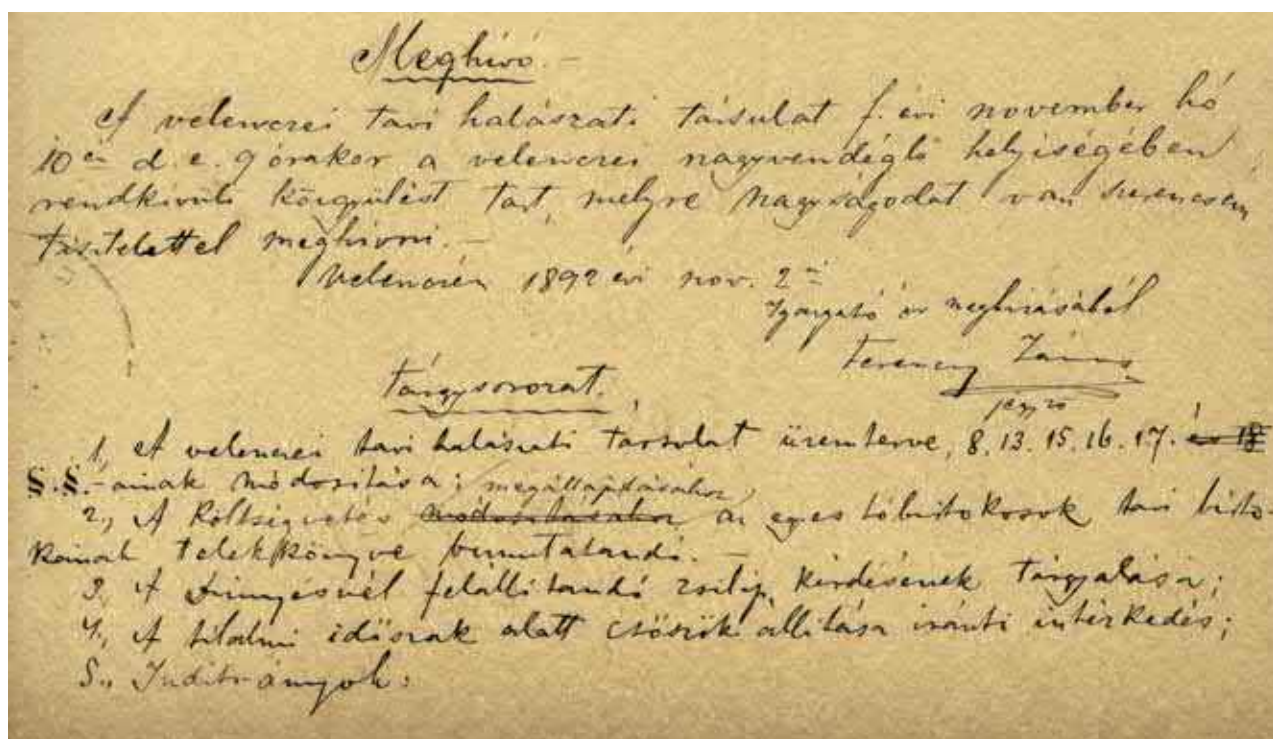 Meghívó.-
A velenczei tavi halászati társulat f. évi november hó
10én d. e. 9 órakor a velenczei nagyvendéglő helyiségében
rendkívüli közgyűlést tart, melyre Nagyságodat van szerencsém
tisztelettel meghivni.-
Velenczén 1892 évi nov. 2á
Igazgató úr megbizásából
Ferenczy János
jegyző
Tárgysorozat.
1, A velenczei tavi halászati társulat üzemterve, 8. 13. 15. 16. 17. és 18
§.§.-ainak módositása;
megállapitásához
2., A Költségvetés módositásához az egyes tóbirtokosok tavi birto-
kainak telekkönyve bemutatandó.-
3., A Dinnyésnél felállitandó zsilip kérdésének tárgyalása;
4., A tilalmi időszak alatt csőszök állitása iránti intézkedés;
5., Inditványok: